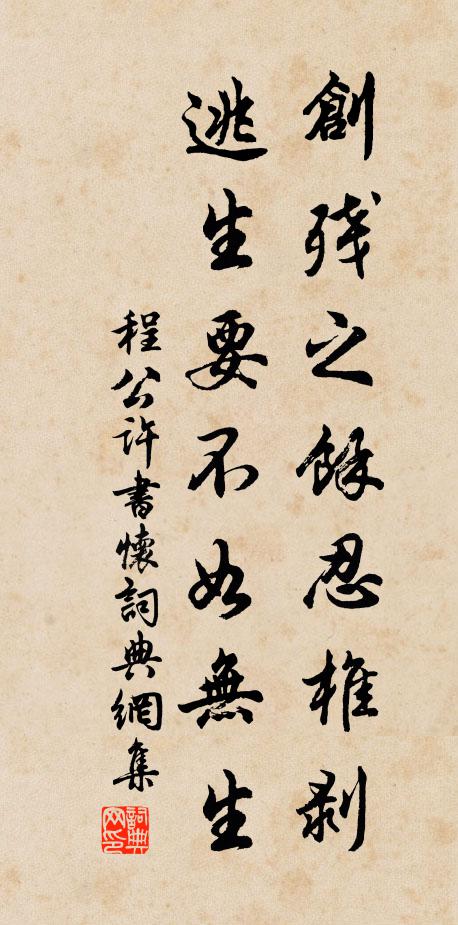 創殘之餘忍榷剥
逃生要不如無生
程公许書懷詞典網集
詞典网印